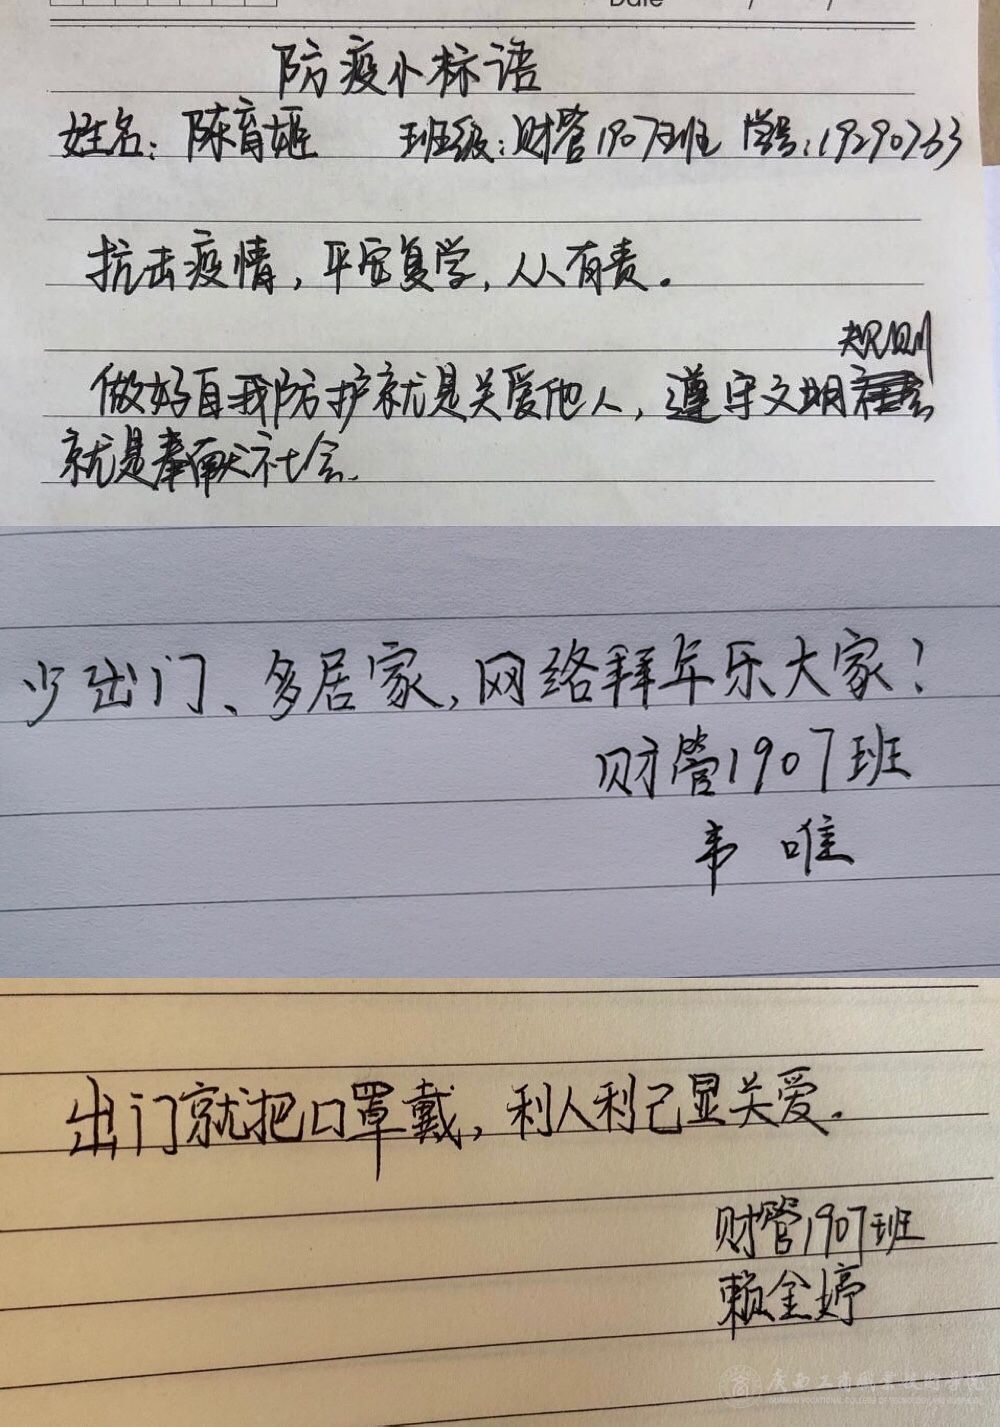 Date / /
防疫小标语
姓名：陈育姬 班级：财管1907班 学号：19290733
抗击疫情，平安复学，人人有责。
规则
做好自我防护就是关爱他人，遵守文明
就是奉献社会.
少出门、多居家，网络拜年乐大家！
财管1907班
韦 唯
出门就把口罩戴，利人利己显关爱.
财管1907班
赖金婷